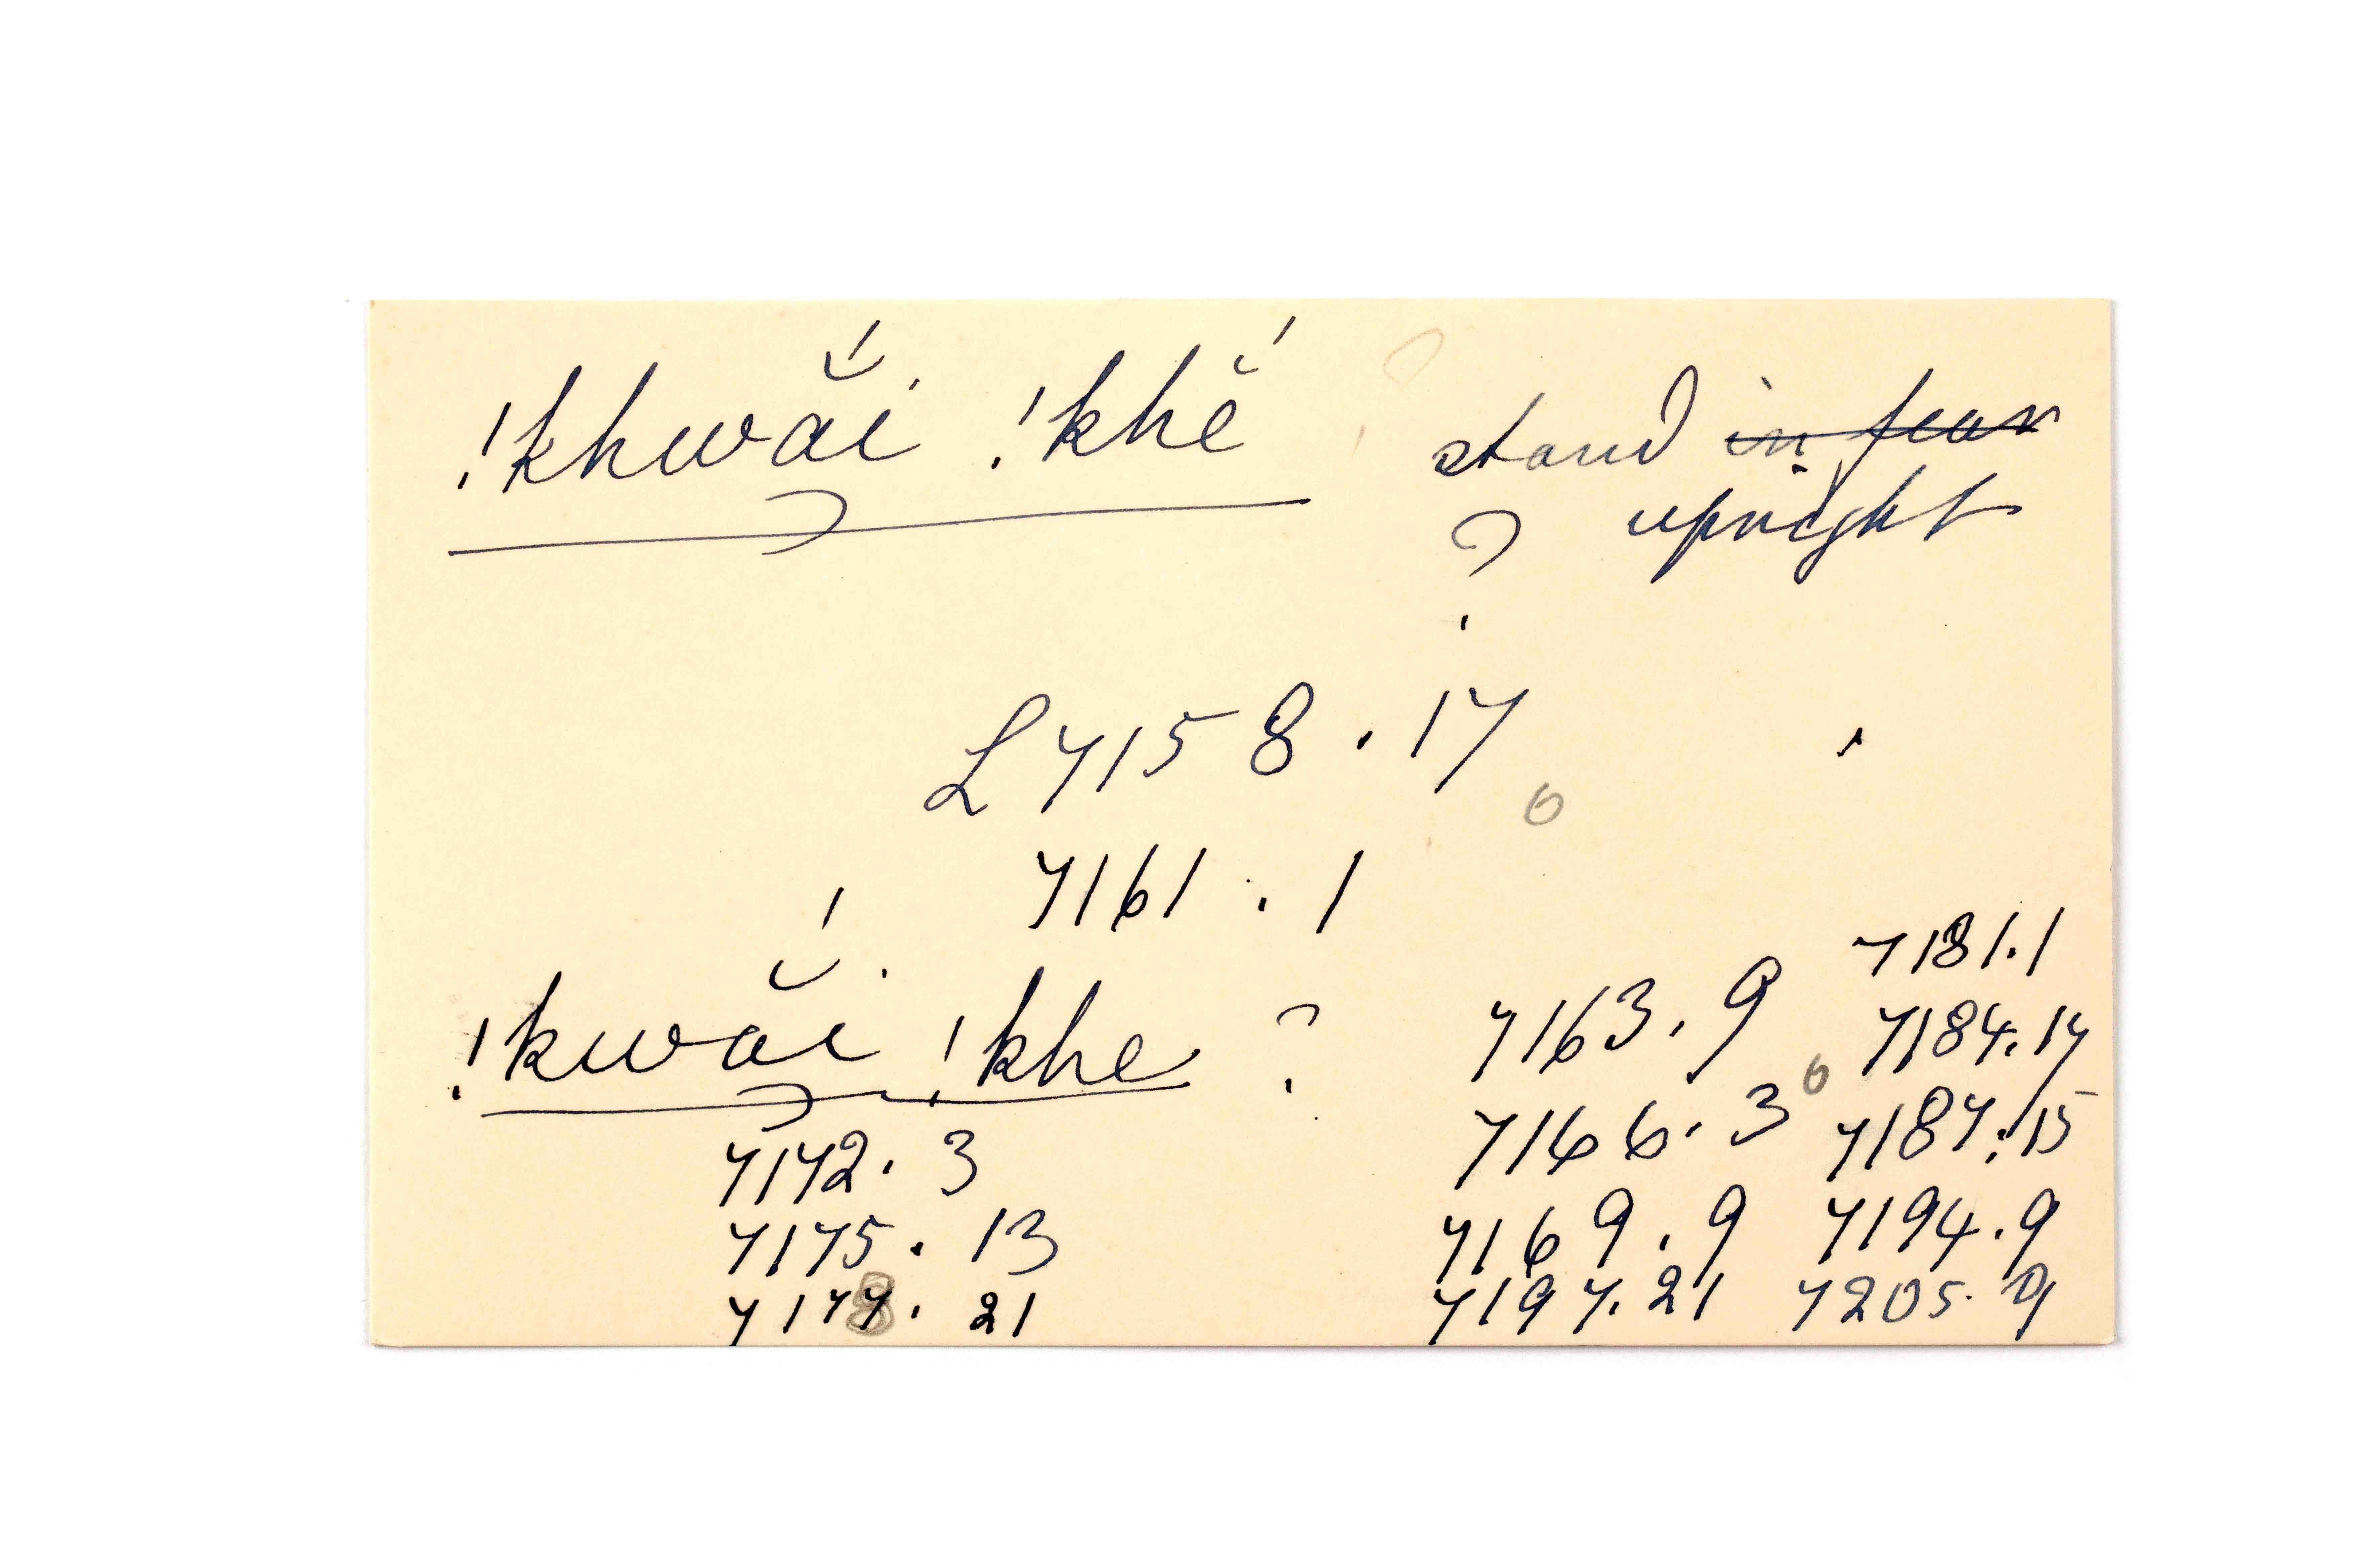 !khwӑ́i !khĕ́ stand ~~in fear~~
? upright
L 7158 . 17
7161 . 1
!kwӑ́i !khe ?
7172 . 3
7175 . 13
7178 . 21
7163 . 9
7166 . 3
7169 . 9
7197 . 21
7181 . 1
7184 . 17
7187 . 15
7194 . 9
7205 . 9